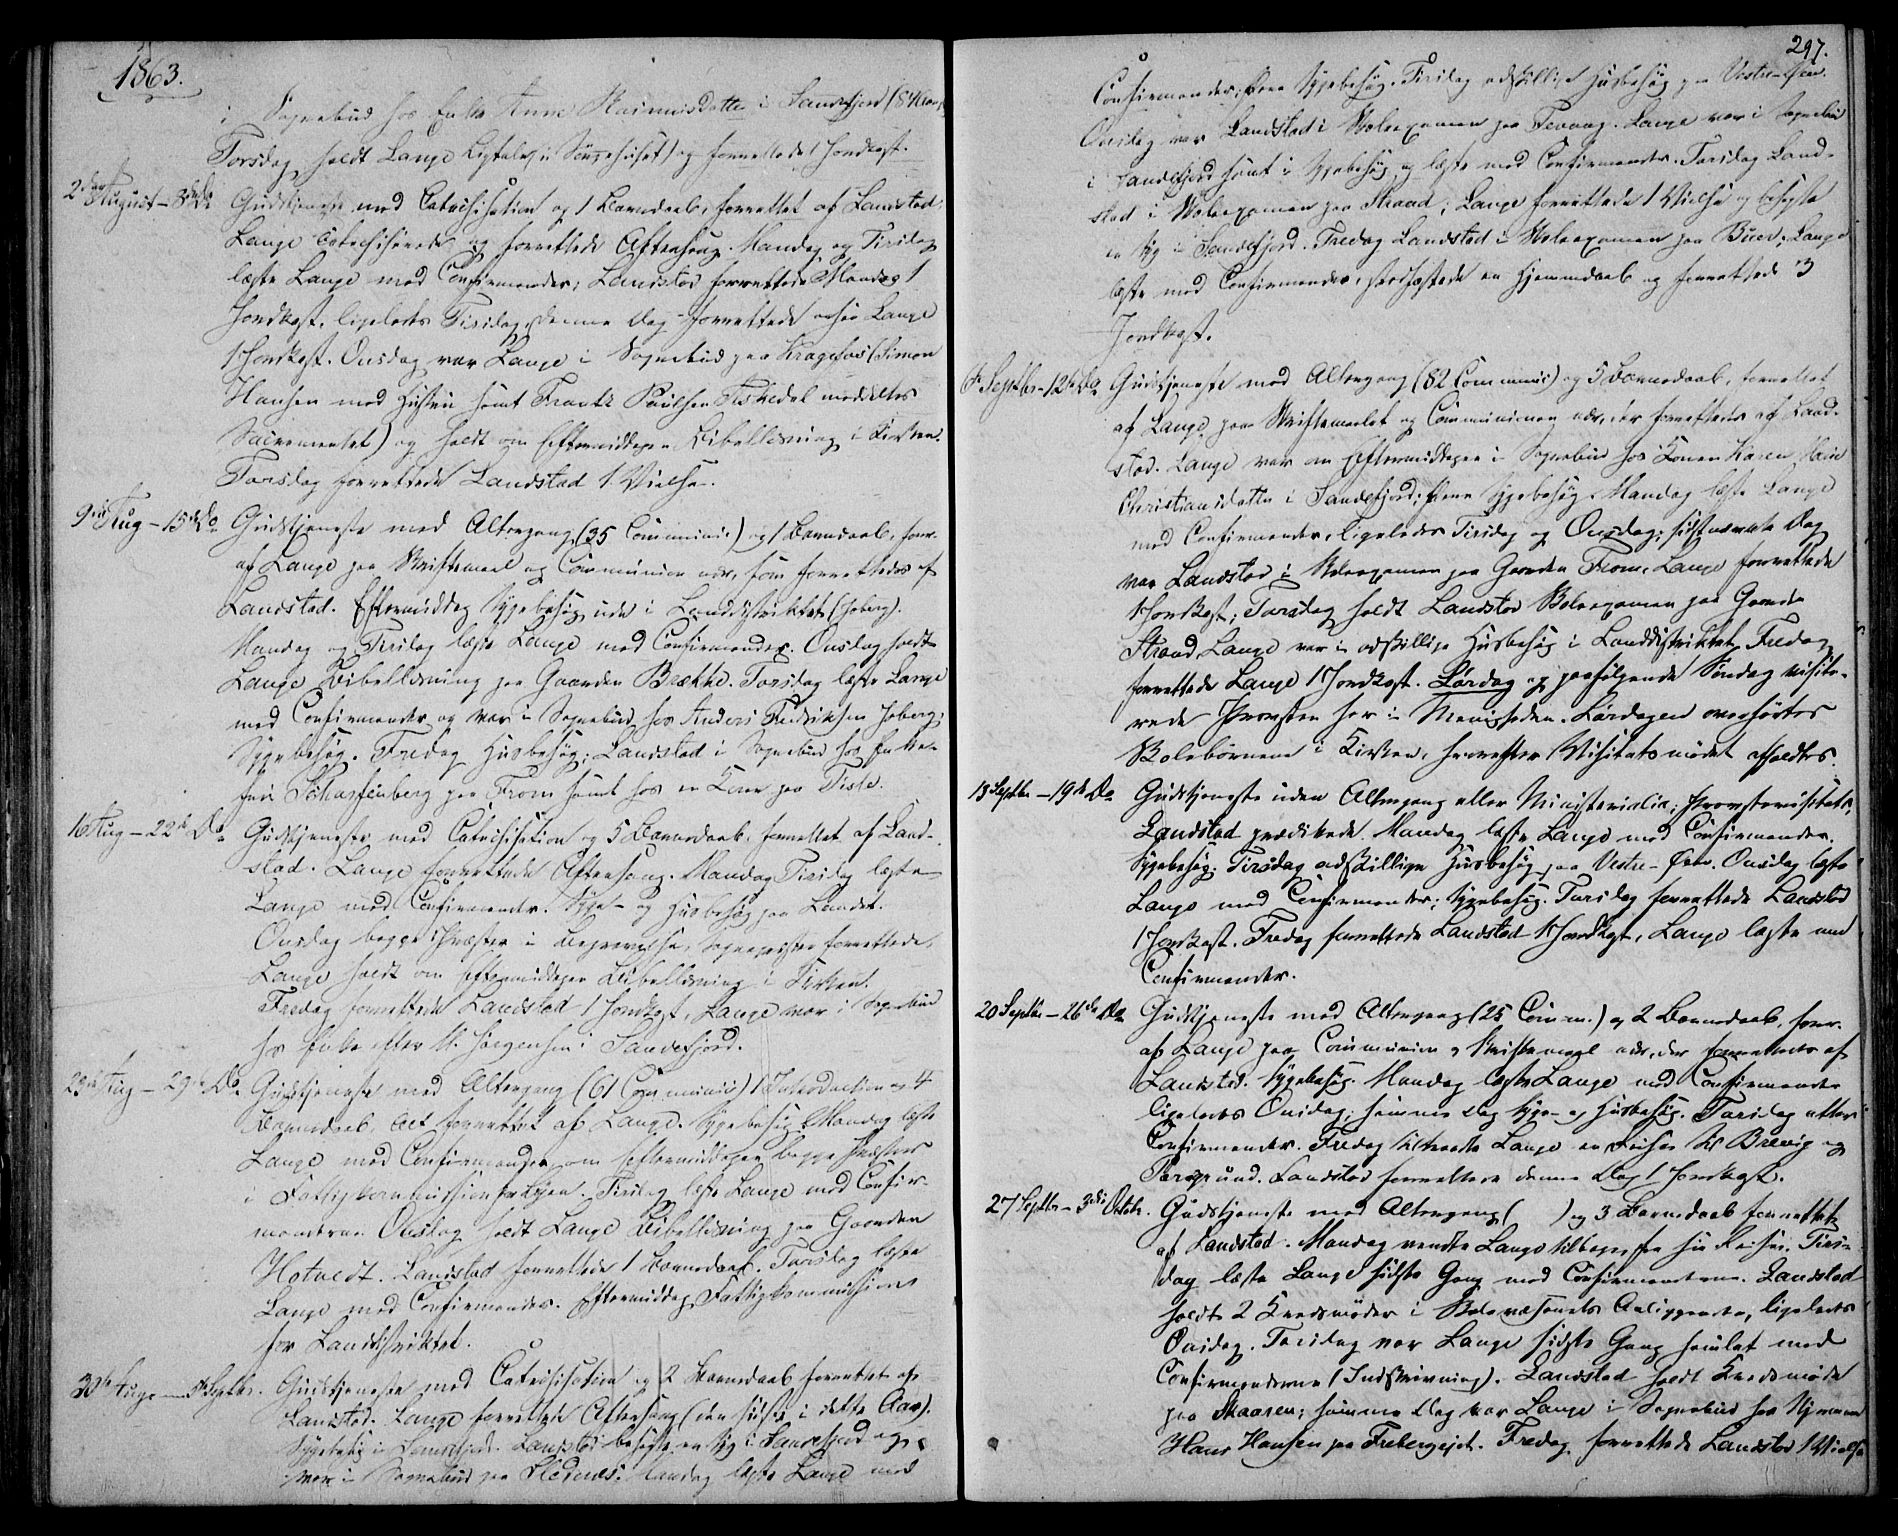 1863.
i Sognebud hos Enke Anne Rasmusdatter i Sandefjord (84 Aar)
Torsdag holdt Lange Ligtale (i Sørgehuset) og forrettede 1 Jordkast.
2den August – 8de Do Gudstjeneste med Catechisation og 1 Barnedaab, forrettet af Landstad.
Lange Catechiserede og forrettede Aftensang. Mandag og Tirsdag
læste Lange med Confirmander; Landstad forrettede Mandag 1
Jordkast, ligeledes Tirsdag, denne Dag forrettede ogsaa Lange
1 Jordkast. Onsdag var Lange i Sognebud paa Kragehos (Simon
Hansen med Hustru samt Frantz Paulsen Askedal meddeltes
Sacramentet) og holdt om Eftermiddagen Bibellæsning i Kirken.
Torsdag forrettede Landstad 1 Vielse.
9de Aug – 15de Do Gudstjeneste med Altergang (35 Communic.) og 1 Barnedaab, forr.
af Lange paa Skriftemaal og Communion nær, som forrettedes af
Landstad. Eftermiddag Sygebesøg ude i Landdistriktet (Joberg).
Mandag og Tirsdag læste Lange med Confirmander. Onsdag holdt
Lange Bibellæsning paa Gaarden Brække. Torsdag læste Lange
med Confirmander og var i Sognebud hos Anders Fredriksen Joberg;
Sygebesøg. Fredag Husbesøg; Landstad i Sognebud hos Enke-
frue Scharfenberg paa From samt hos en Kone paa Tisle.
16 Aug – 22de Do Gudstjeneste med Catechisation og 5 Barnedaab, forrettet af Land-
stad. Lange forrettede Aftensang. Mandag Tirsdag læste
Lange med Confirmander. Syge- og Husbesøg paa Landet.
Onsdag begge Præster i Begravelse, Sognepræsten forrettede.
Lange holdt om Eftermiddagen Bibellæsning i Kirken.
Fredag forrettede Landstad 1 Jordkast, Lange var i Sognebud
hos Enke efter M. Jørgensen i Sandefjord.
23de Aug – 29de Do Gudstjeneste med Altergang (61 Communic.) 1 Introduction og 4
Barnedaab, Alt forrettet af Lange. Sygebesøg. Mandag læste
Lange med Confirmander, om Eftermiddagen begge Præster
i Fattigkommission for Byen. Tirsdag læste Lange med Confir-
manderne. Onsdag holdt Lange Bibellæsning paa Gaarden
Hotvedt. Landstad forrettede 1 Barnedaab. Torsdag læste
Lange med Confirmander. Eftermiddag Fattigkommission
for Landdistriktet.
30te Aug – 5te Septbr. Gudstjeneste med Catechisation og 2 Barnedaab forrettet af
Landstad. Lange forrettede Aftensang (den sidste i dette Aar).
Sygebesøg i Sandefjord. Landstad besøgte en Syg i Sandefjord og
var i Sognebud paa Hednæs. Mandag læste Lange med
297.
Confirmander; flere Sygebesøg. Tirsdag adskillige Husbesøg paa Vestre-Øen.
Onsdag var Landstad i Skoleexamen paa Tevaag. Lange var i Sognebud
i Sandefjord samt i Sygebesøg og læste med Confirmander. Torsdag Land-
stad i Skoleexamen paa Strand; Lange forrettede 1 Vielse og besøgte
en Syg i Sandefjord. Fredag Landstad i Skoleexamen paa Buer. Lange
læste med Confirmander, stadfæstede en Hjemmedaab og forrettede 3
Jordkast.
6 Septbr – 12te Do Gudstjeneste med Altergang (82 Communic) og 5 Barnedaab, forrettet
af Lange, paa Skriftemaalet og Communionen nær, der forrettedes af Land-
stad. Lange var om Eftermiddagen i Sognebud hos Konen Karen Marie
Christiansdatter i Sandefjord; flere Sygebesøg. Mandag læste Lange
med Confirmander, ligeledes Tirsdag og Onsdag; sidstnævnte Dag
var Landstad i Skoleexamen paa Gaarden From, Lange forrettede
1 Jordkast; Torsdag holdt Landstad Skoleexamen paa Gaarden
Strand, Lange var i adskillige Husbesøg i Landdistriktet. Fredag
forrettede Lange 1 Jordkast. Lørdag og paafølgende Søndag visite-
rede Provsten her i Menigheden. Lørdagen overhørtes
Skolebørnene i Kirken, hvorefter Visitatsmødet afholdtes.
13 Septbr – 19de Do Gudstjeneste uden Altergang eller Ministerialia; Provstevisitats,
Landstad prædikede. Mandag læste Lange med Confirmander.
Sygebesøg. Tirsdag adskillige Husbesøg paa Vestre-Øen. Onsdag læste
Lange med Confirmander; Sygebesøg. Torsdag forrettede Landstad
1 Jordkast. Fredag forrettede Landstad 1 Jordkast, Lange læste med
Confirmander.
20 Septbr – 26de Do Gudstjeneste med Altergang (25 Comm.) og 2 Barnedaab, forr.
af Lange paa Communion og Skriftemaal nær, der forrettedes af
Landstad. Sygebesøg. Mandag læste Lange med Confirmander
ligeledes Onsdag; samme Dag Syge- og Husbesøg. Torsdag atter
Confirmander. Fredag tiltraadte Lange en Reise til Brevig og
Porsgrund. Landstad forrettede denne Dag 1 Jordkast.
27 Septbr – 3die Octbr. Gudstjeneste med Altergang ( ) og 3 Barnedaab forrettet
af Landstad. Mandag vendte Lange tilbage fra sin Reise. Tirs-
dag læste Lange sidste Gang med Confirmanderne. Landstad
holdt 2 Kredsmøder i Skolevæsenets Anliggender, ligeledes
Onsdag. Torsdag var Lange sidste Gang samlet med
Confirmanderne (Indskrivning). Landstad holdt Kredsmøde
paa Skaaren; samme Dag var Lange i Sognebud hos
Hans Hansen paa Frebergejet. Fredag forrettede Landstad 1 Vielse